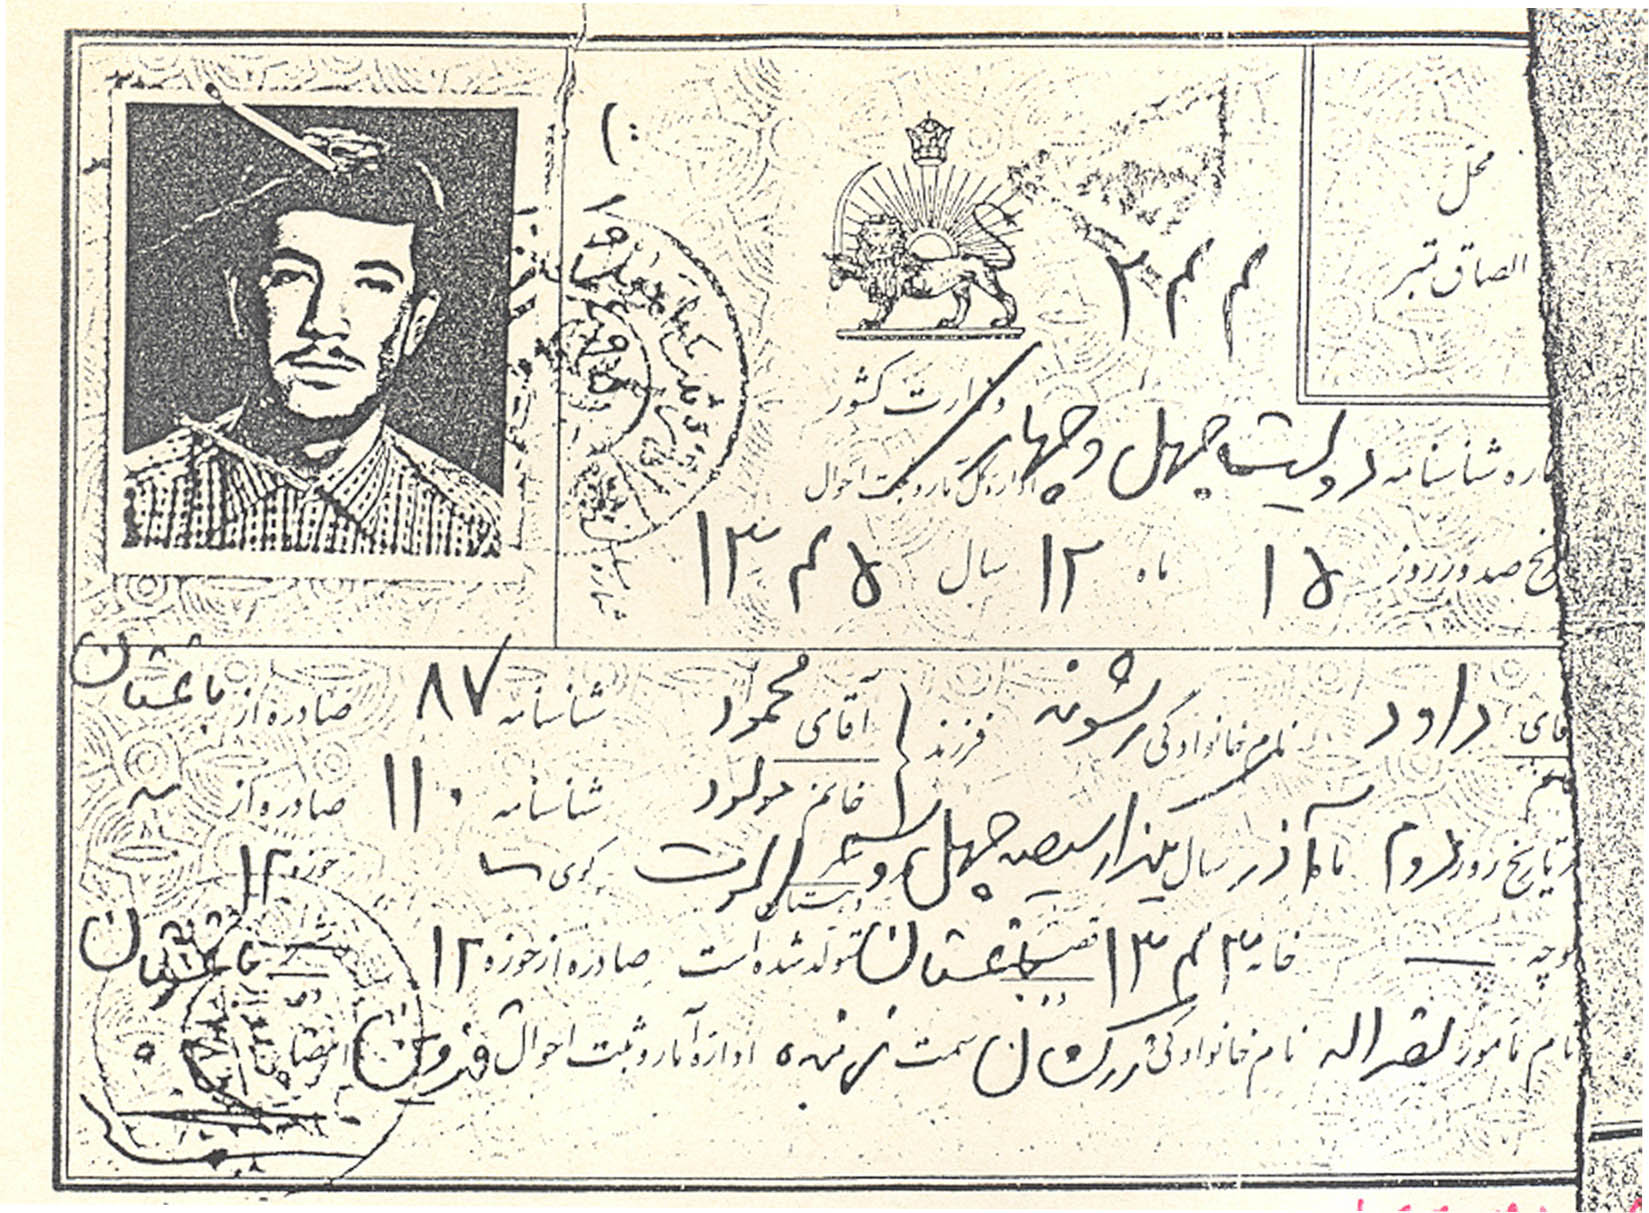 محل
الصاق تمبر
۲۴۴
وزارت کشور
اداره کل آمار و ثبت احوال
شماره شناسنامه دویست چهل و چهار
تاریخ صدور روز ۱۵ ماه ۱۲ سال ۱۳۴۵
آقای داود نام خانوادگی فرزند آقای محمود شناسنامه ۸۷ صادره از باغستان
خانم خانم مولود شناسنامه ۱۱۰ صادره از
در تاریخ روز دوم ماه آذر سال یکهزار سیصد چهل و شهر الموت کوی حوزه ۱۲
کوچه خانه ۱۳۴۳ قصبه باغستان تولد شده است صادره از حوزه ۱۲ شهر باغستان
نام مامور نصراله نام خانوادگی سمت نماینده اداره آمار و ثبت احوال قزوین امضاء